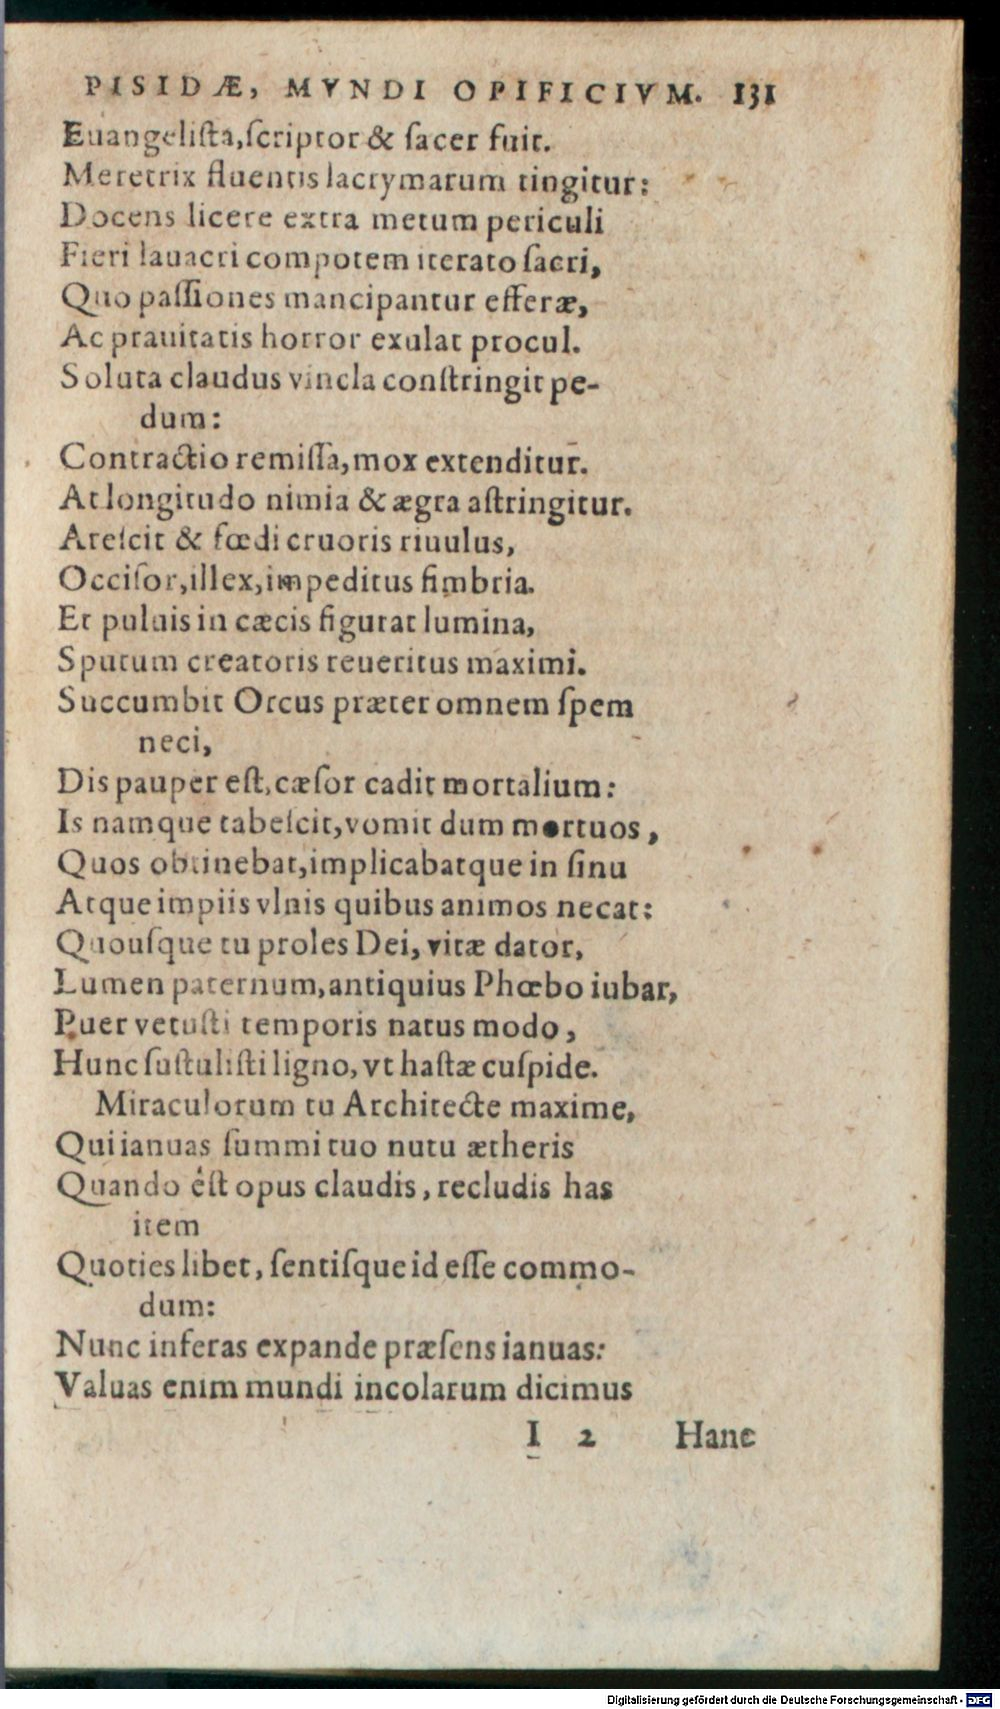 PISIDÆ, MVNDI OPIFICIVM. 131
Euangeliſta, ſcriptor & ſacer fuit.
Meretrix fluentis lacrymarum tingitur:
Docens licere extra metum periculi
Fieri lauacri compotem iterato ſacri,
Quo paſſiones mancipantur efferæ,
Ac prauitatis horror exulat procul.
Soluta claudus vincla conſtringit pe-
dum:
Contractio remiſſa, mox extenditur.
At longitudo nimia & ægra aſtringitur.
Areſcit & fœdi cruoris riuulus,
Occiſor, illex, impeditus fimbria.
Et puluis in cæcis figurat lumina,
Sputum creatoris reueritus maximi.
Succumbit Orcus præter omnem ſpem
neci,
Dis pauper eſt, cæſor cadit mortalium:
Is namque tabeſcit, vomit dum mortuos,
Quos obtinebat, implicabatque in ſinu
Atque impiis vlnis quibus animos necat:
Quouſque tu proles Dei, vitæ dator,
Lumen paternum, antiquius Phœbo iubar,
Puer vetuſti temporis natus modo,
Hunc ſuſtuliſti ligno, vt haſtæ cuſpide.
Miraculorum tu Architecte maxime,
Qui ianuas ſummi tuo nutu ætheris
Quando eſt opus claudis, recludis has
item
Quoties libet, ſentiſque id eſſe commo-
dum:
Nunc inferas expande præſens ianuas:
Valuas enim mundi incolarum dicimus
I 2 Hanc
Digitalisierung gefördert durch die Deutsche Forschungsgemeinschaft - DFG